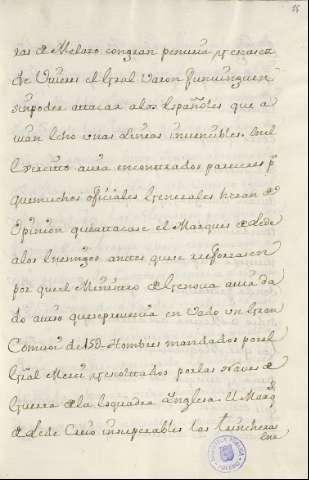 ras de Melazo con gran penuria y escasez
de Viveres el Gral Varon Ɣumunguen
sin poder attacar a los Españoles que a
vian hcho unas lineas invencibles. En el
Exercito avia encontrados pareceres pr
que muchos oficiales Generales heran de
Opinion que attacase el Marques de Lede
a los Enemigos antes que se reforzasen
por que el Ministro de Genova avia da
do aviso que se prevenia en Vado un Gran
Comvoi de 15@ Hombres mandados por el
Gral Merci y escoltados por las naves de
Guerra de la Esquadra Inglesa. El Marqs
de Lede Creio insuperables las trincheras
ene